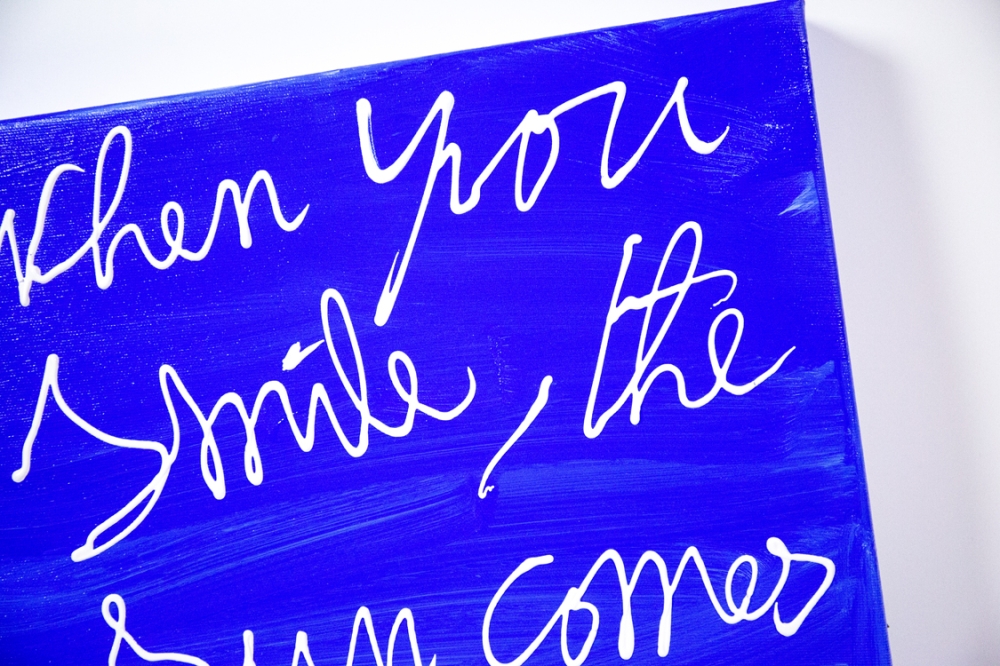 When you
smile, the
sun comes